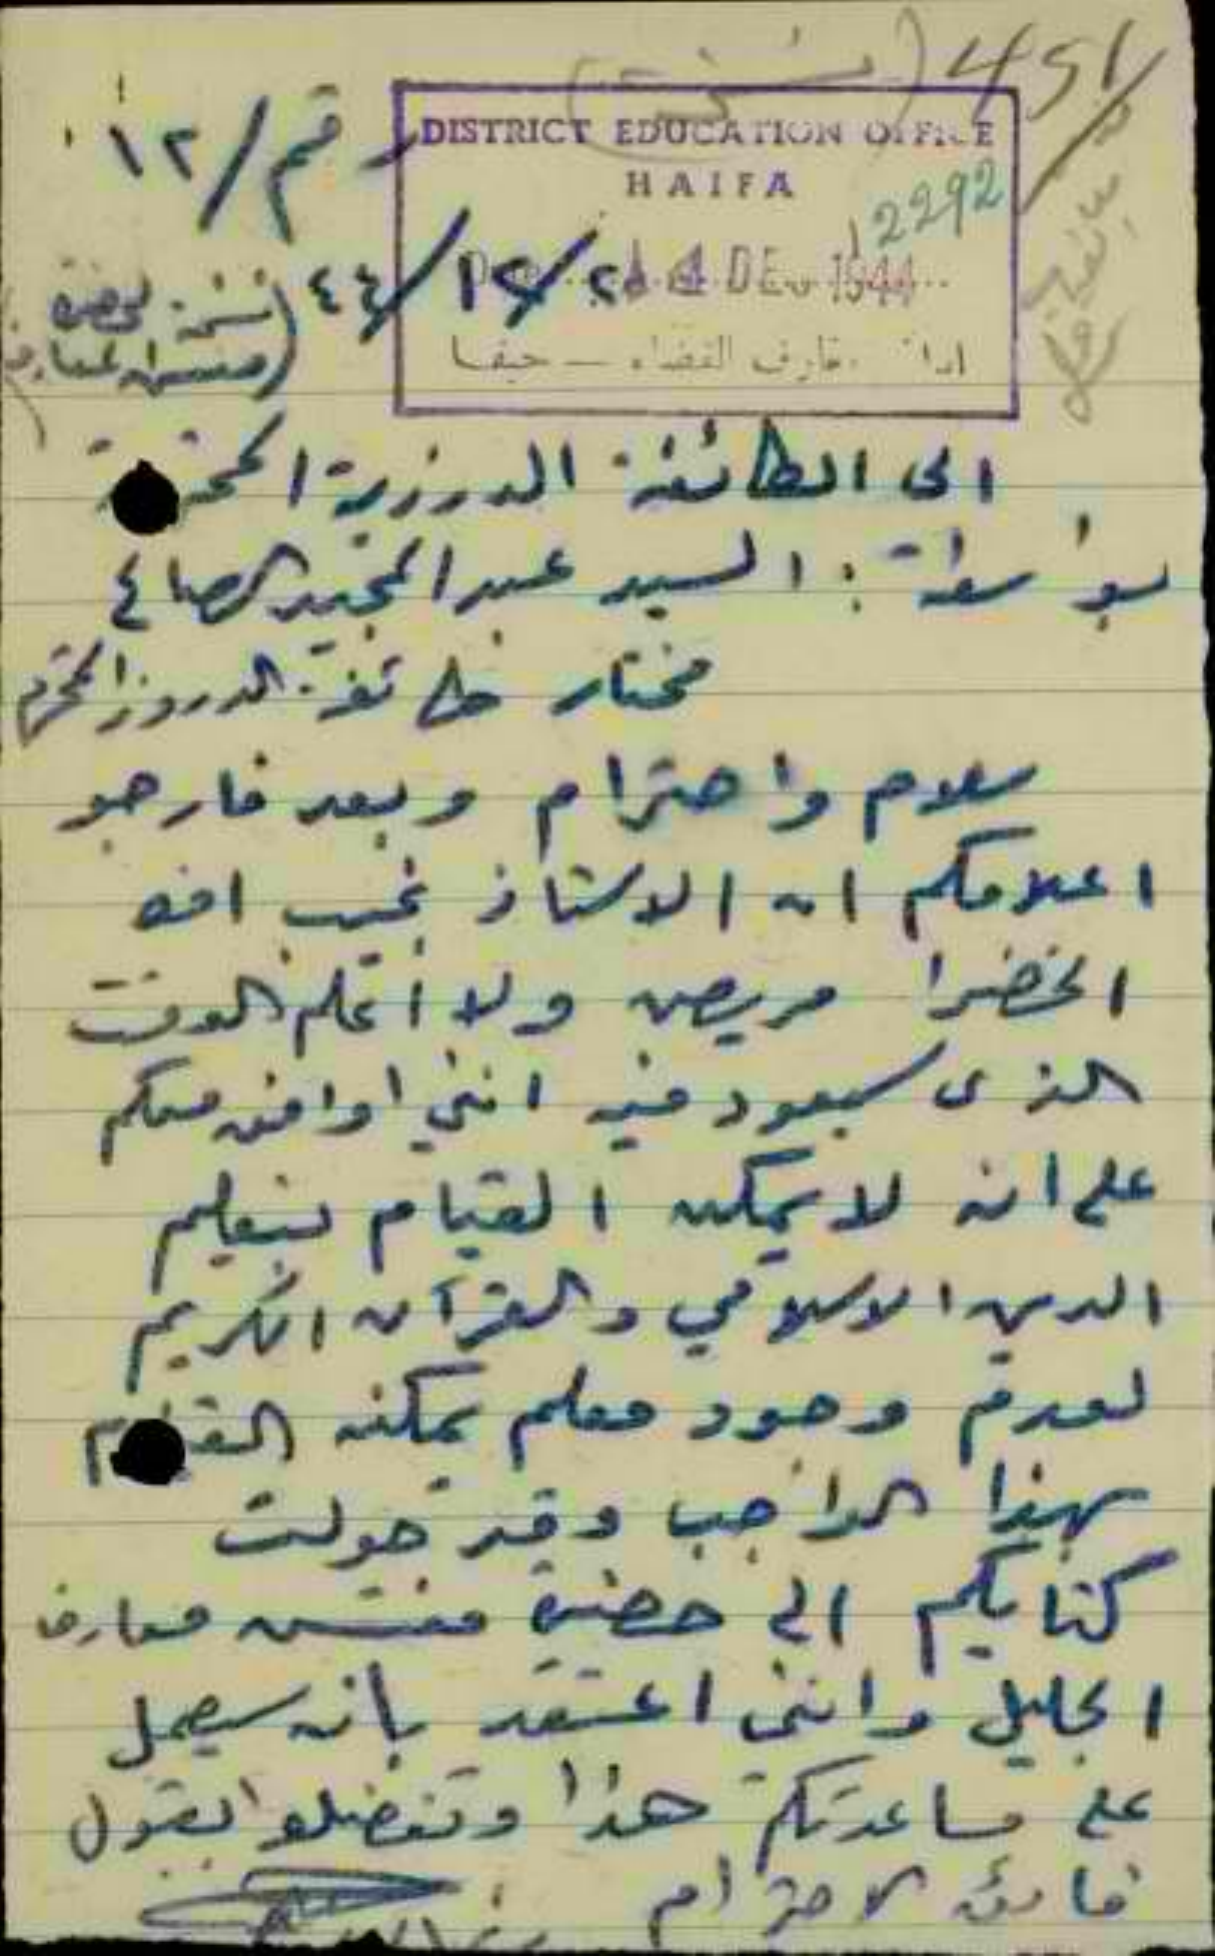 451/
(نسخة)
رقم/١٢
DISTRICT EDUCATION OFFICE
HAIFA
2292
14 DEC 1944
٤٤/١٢/
(نسخة لحضرة
مفتش المعارف)
حيفا
الى الطائفة الدرزية المحترمة
بواسطة : السيد عبد المجيد الصالح
مختار طائفة الدروز المحترم
سلام واحترام وبعد فارجو
اعلامكم ان الاستاذ نجيب افندي
الخضرا مريض ولا أعلم الوقت
الذي سيعود فيه انني اوافق معكم
على انه لا يمكن القيام بتعليم
الدين الاسلامي والقرآن الكريم
لعدم وجود معلم يمكنه القيام
بهذا الواجب وقد حولت
كتابكم الى حضرة مفتش معارف
الجليل وانني اعتقد بانه سيعمل
على مساعدتكم هذا وتفضلوا بقبول
فائق الاحترام